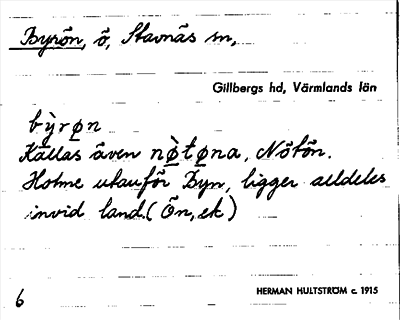 Byrön, ö, Stavnäs sn,
Gillbergs hd, Värmlands län
bỳrøn
Kallas även nø̀tøna, Nötön.
Holme utanför Byn, ligger alldeles
invid land. (Ön, ek)
6
HERMAN HULTSTRÖM c. 1915